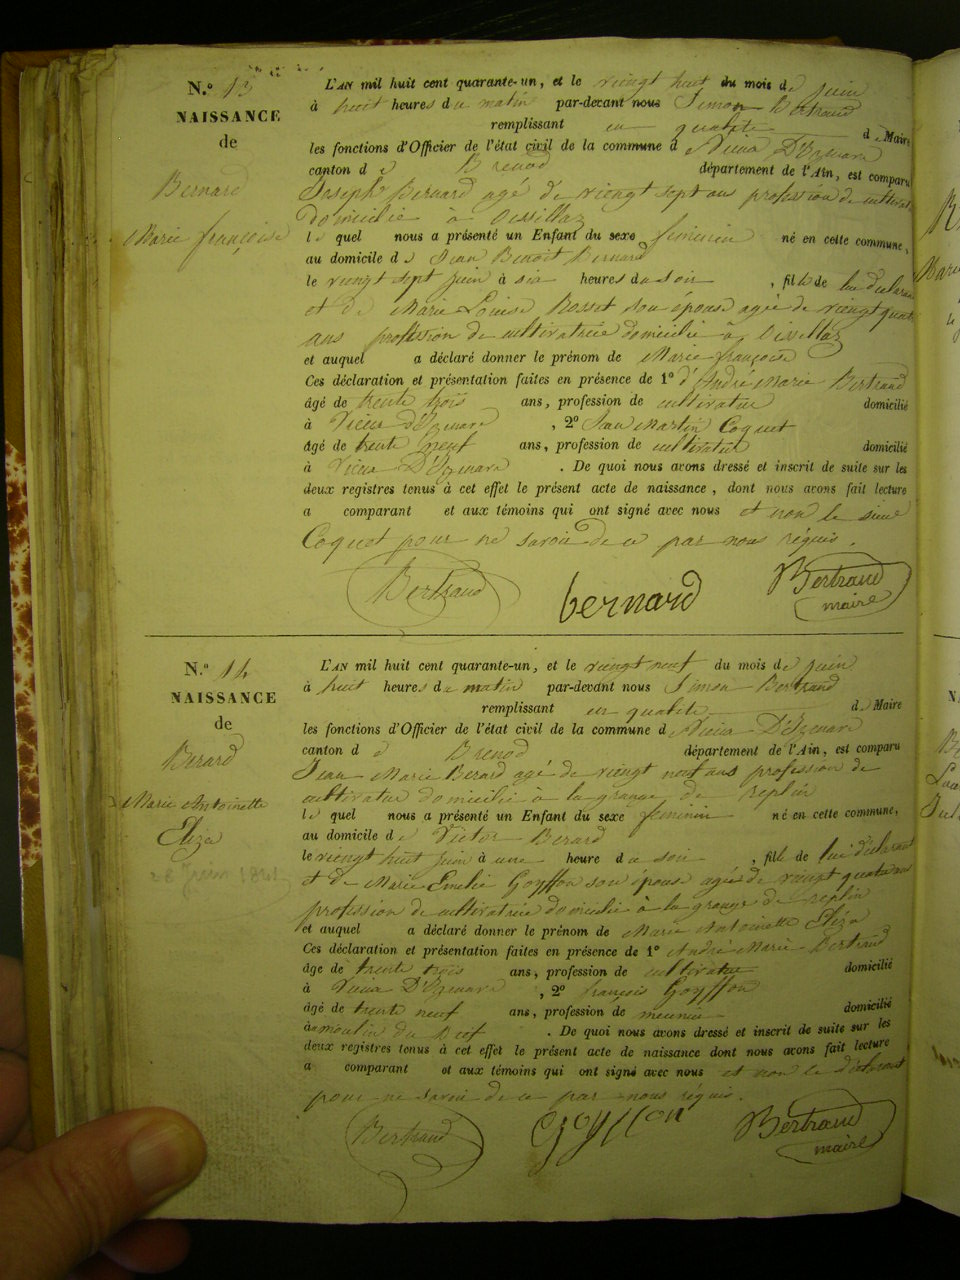 N.° 13
NAISSANCE
de
Bernard
Marie françoise
L'AN mil huit cent quarante-un, et le vingt huit du mois de juin
à huit heures du matin par-devant nous Simon Bertrand
remplissant en qualité de Maire
les fonctions d'Officier de l'état civil de la commune d Vieux D'Izenave
canton d e Brenod département de l'Ain, est comparu
Joseph Bernard agé de vingt sept ans profession de cultivat
domicilié à
le quel nous a présenté un Enfant du sexe feminin né en cette commune,
au domicile de Jean Benoit Bernard
le vingt sept juin à six heures du soir , fille de lui déclarant
et de Marie Louise Rosset son épouse agée de vingt quatre
ans profession de cultivatrice domicilié à
et auquel a déclaré donner le prénom de Marie françoise
Ces déclaration et présentation faites en présence de 1° d'André Marie Bertrand
âgé de trente trois ans, profession de cultivateur domicilié
à Vieux d'Izenave , 2° Jean Martin Coquet
âgé de trente neuf ans, profession de cultivateur domicilié
à Vieux D'Izenave . De quoi nous avons dressé et inscrit de suite sur les
deux registres tenus à cet effet le présent acte de naissance, dont nous avons fait lecture
a comparant et aux témoins qui ont signé avec nous et non le sieur
Coquet pour ne savoir de ce par nous réquis.
Bertrand bernard Bertrand
maire
N.° 14
NAISSANCE
de
Berard
Marie Antoinette
Eliza
28 juin 1841
L'AN mil huit cent quarante-un, et le vingt neuf du mois de juin
à huit heures du matin par-devant nous Simon Bertrand
remplissant en qualité de Maire
les fonctions d'Officier de l'état civil de la commune d Vieux D'Izenave
canton d e Brenod département de l'Ain, est comparu
Jean Marie Berard agé de vingt neuf ans profession de
cultivateur domicilié à la grange de replin
le quel nous a présenté un Enfant du sexe feminin né en cette commune,
au domicile de Victor Berard
le vingt huit juin à une heure du soir , fille de lui déclarant
et de Marie Emelie Goyffon son épouse agée de vingt quatre ans
profession de cultivatrice domicilié à la grange de replin
et auquel a déclaré donner le prénom de Marie Antoinette Eliza
Ces déclaration et présentation faites en présence de 1° André Marie Bertrand
âge de trente trois ans, profession de cultivateur domicilié
à Vieux D'Izenave , 2° françois Goyffon
âgé de trente neuf ans, profession de meunier domicilié
à moulin du . De quoi nous avons dressé et inscrit de suite sur les
deux registres tenus à cet effet le présent acte de naissance dont nous avons fait lecture
a comparant et aux témoins qui ont signé avec nous et non le déclarant
pour ne savoir de ce par nous réquis.
Bertrand Goyffon Bertrand
maire